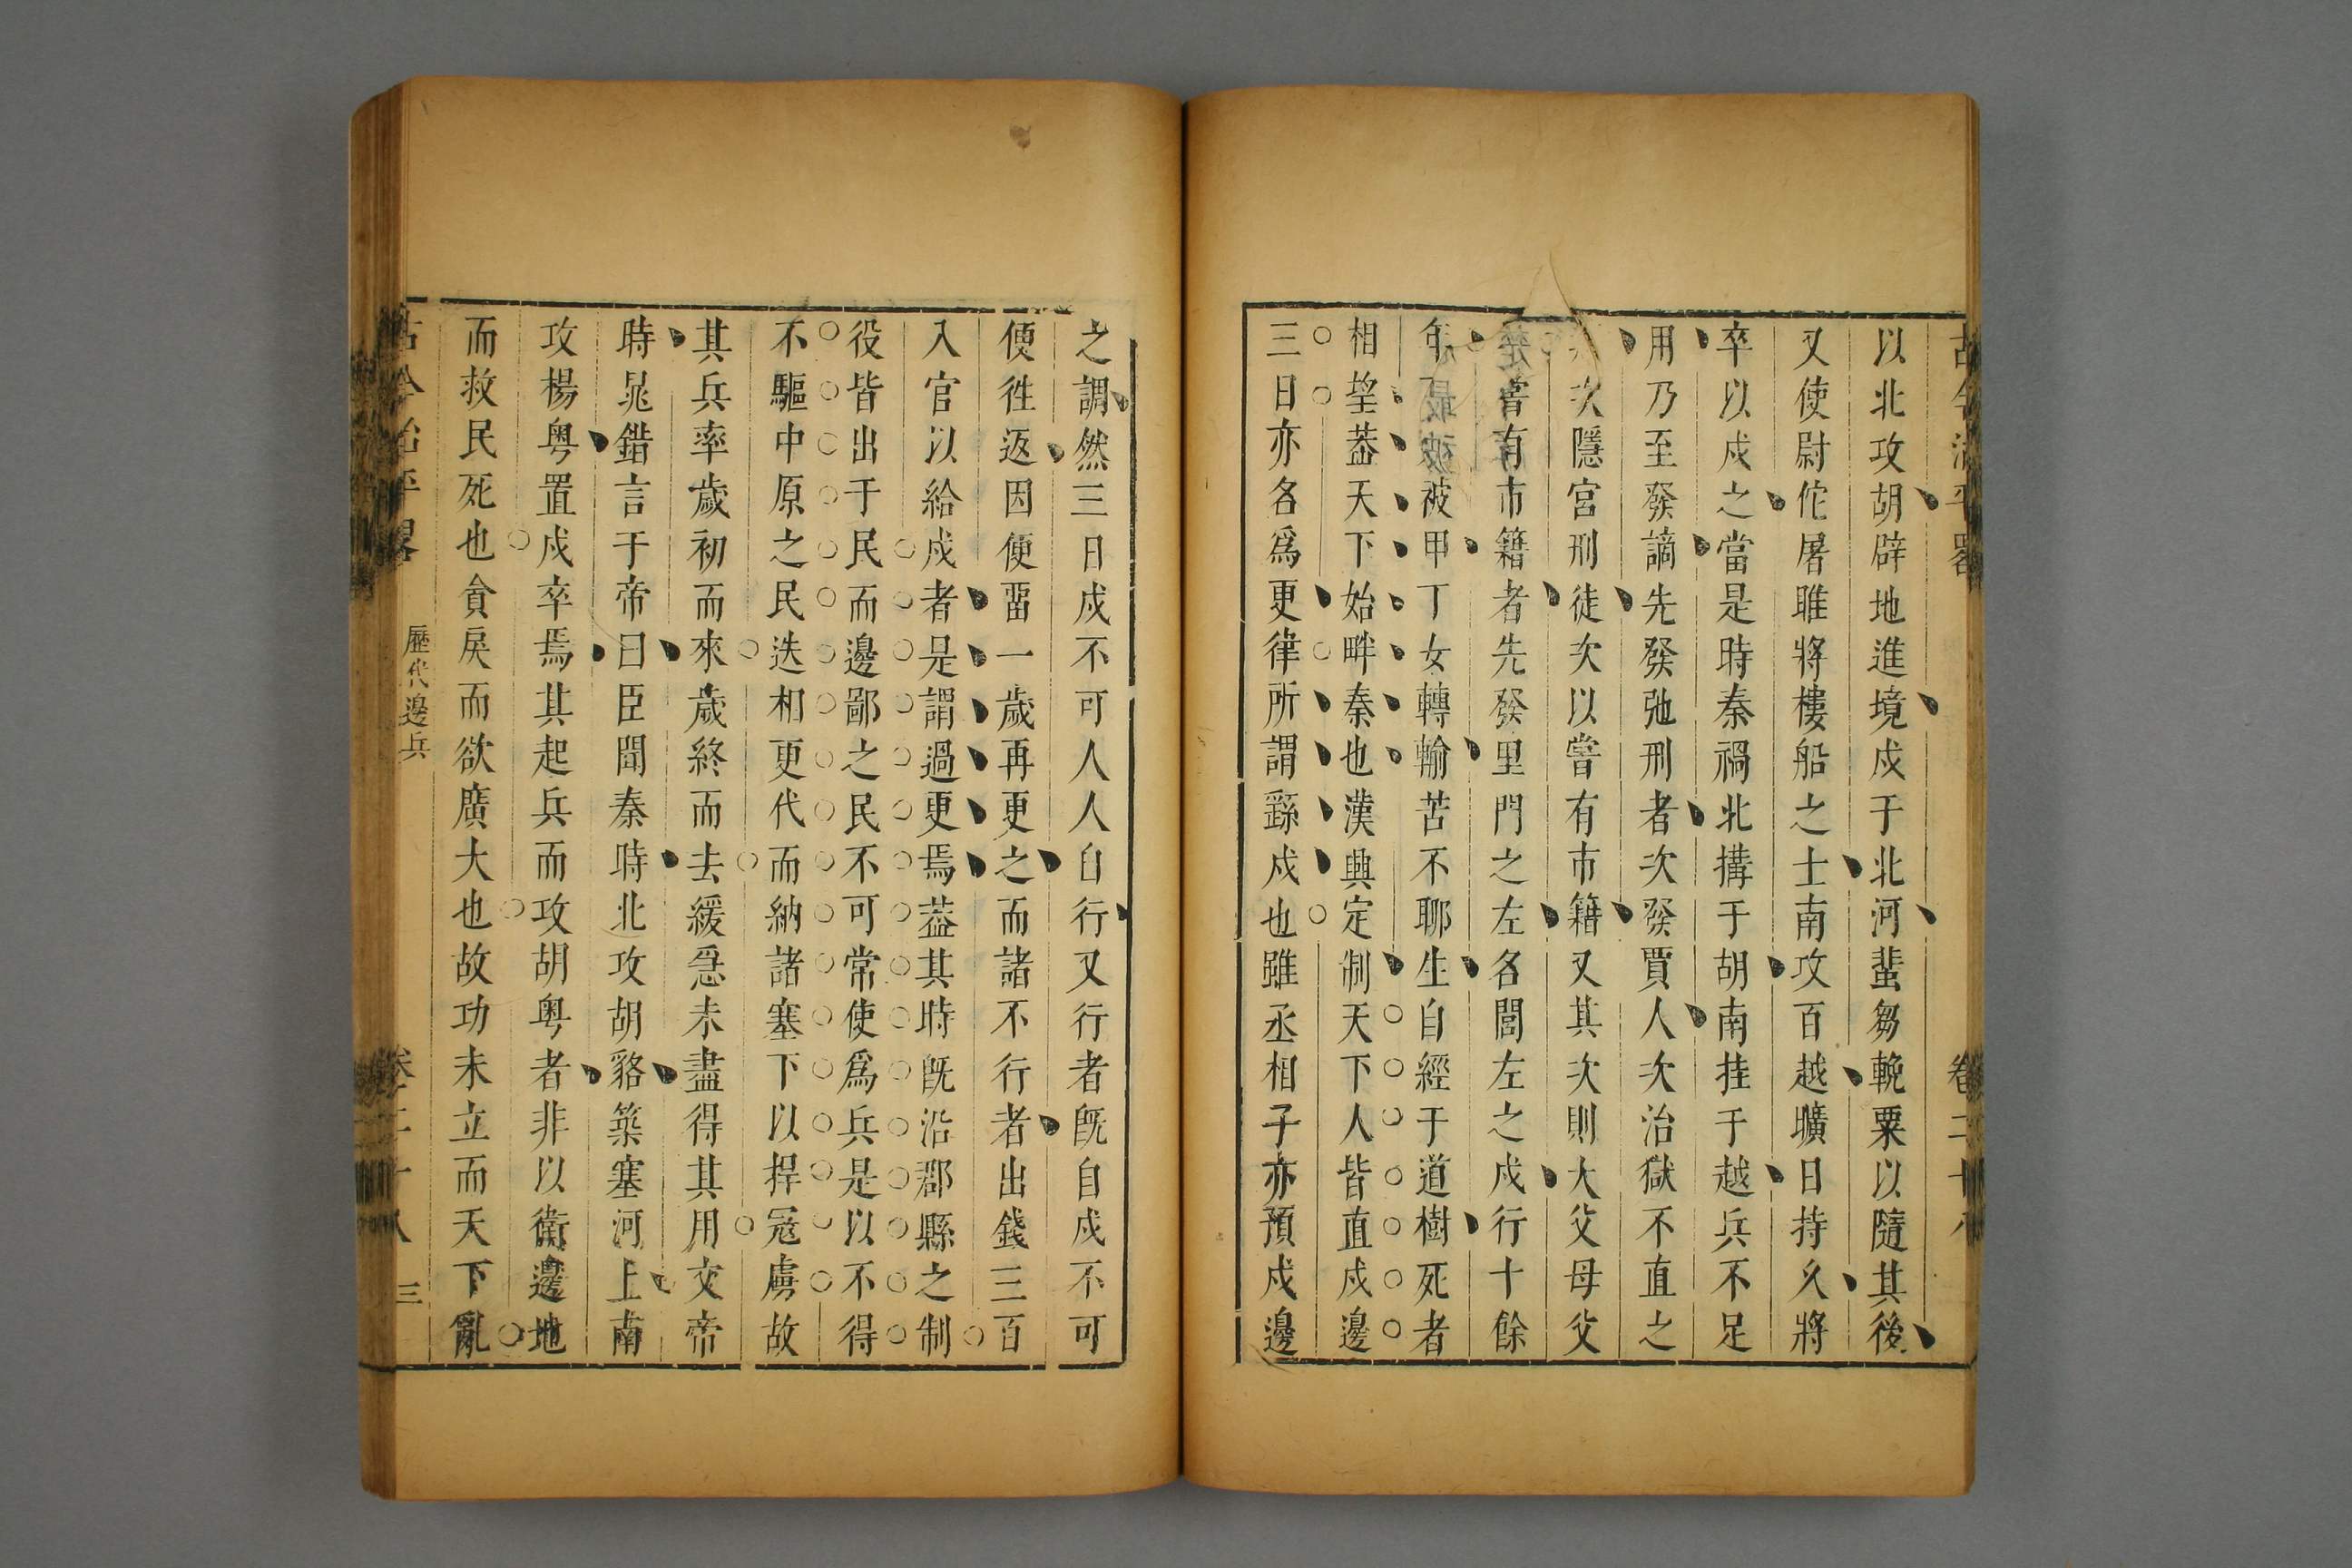 古今治平畧 卷二十八
以北攻胡辟地進境戍于北河蜚芻輓粟以隨其後
又使尉佗屠睢將樓船之士南攻百越曠日持久將
卒以戍之當是時秦禍北搆于胡南挂于越兵不足
用乃至發謫先發弛刑者次發賈人次治獄不直之
次隱宮刑徒次以嘗有市籍又其次則大父母父
嘗有市籍者先發里門之左名閭左之戍行十餘
年被甲丁女轉輸苦不聊生自經于道樹死者
相望葢天下始畔秦也漢興定制天下人皆直戍邊
三日亦各爲更律所謂繇戍也雖丞相子亦預戍邊
之調然三日戍不可人人自行又行者旣自戍不可
便徃返因便畱一歲再更之而諸不行者出錢三百
入官以給戍者是謂過更焉葢其時旣沿郡縣之制
役皆出于民而邊鄙之民不可常使爲兵是以不得
不驅中原之民迭相更代而納諸塞下以捍冦虜故
其兵率歲初而來歲終而去緩急未盡得其用文帝
時鼂錯言于帝曰臣聞秦時北攻胡貉築塞河上南
攻楊粤置戍卒焉其起兵而攻胡粤者非以衛邊地
而救民死也貪戾而欲廣大也故功未立而天下亂
古今治平畧 歷代邊兵 卷二十八 三